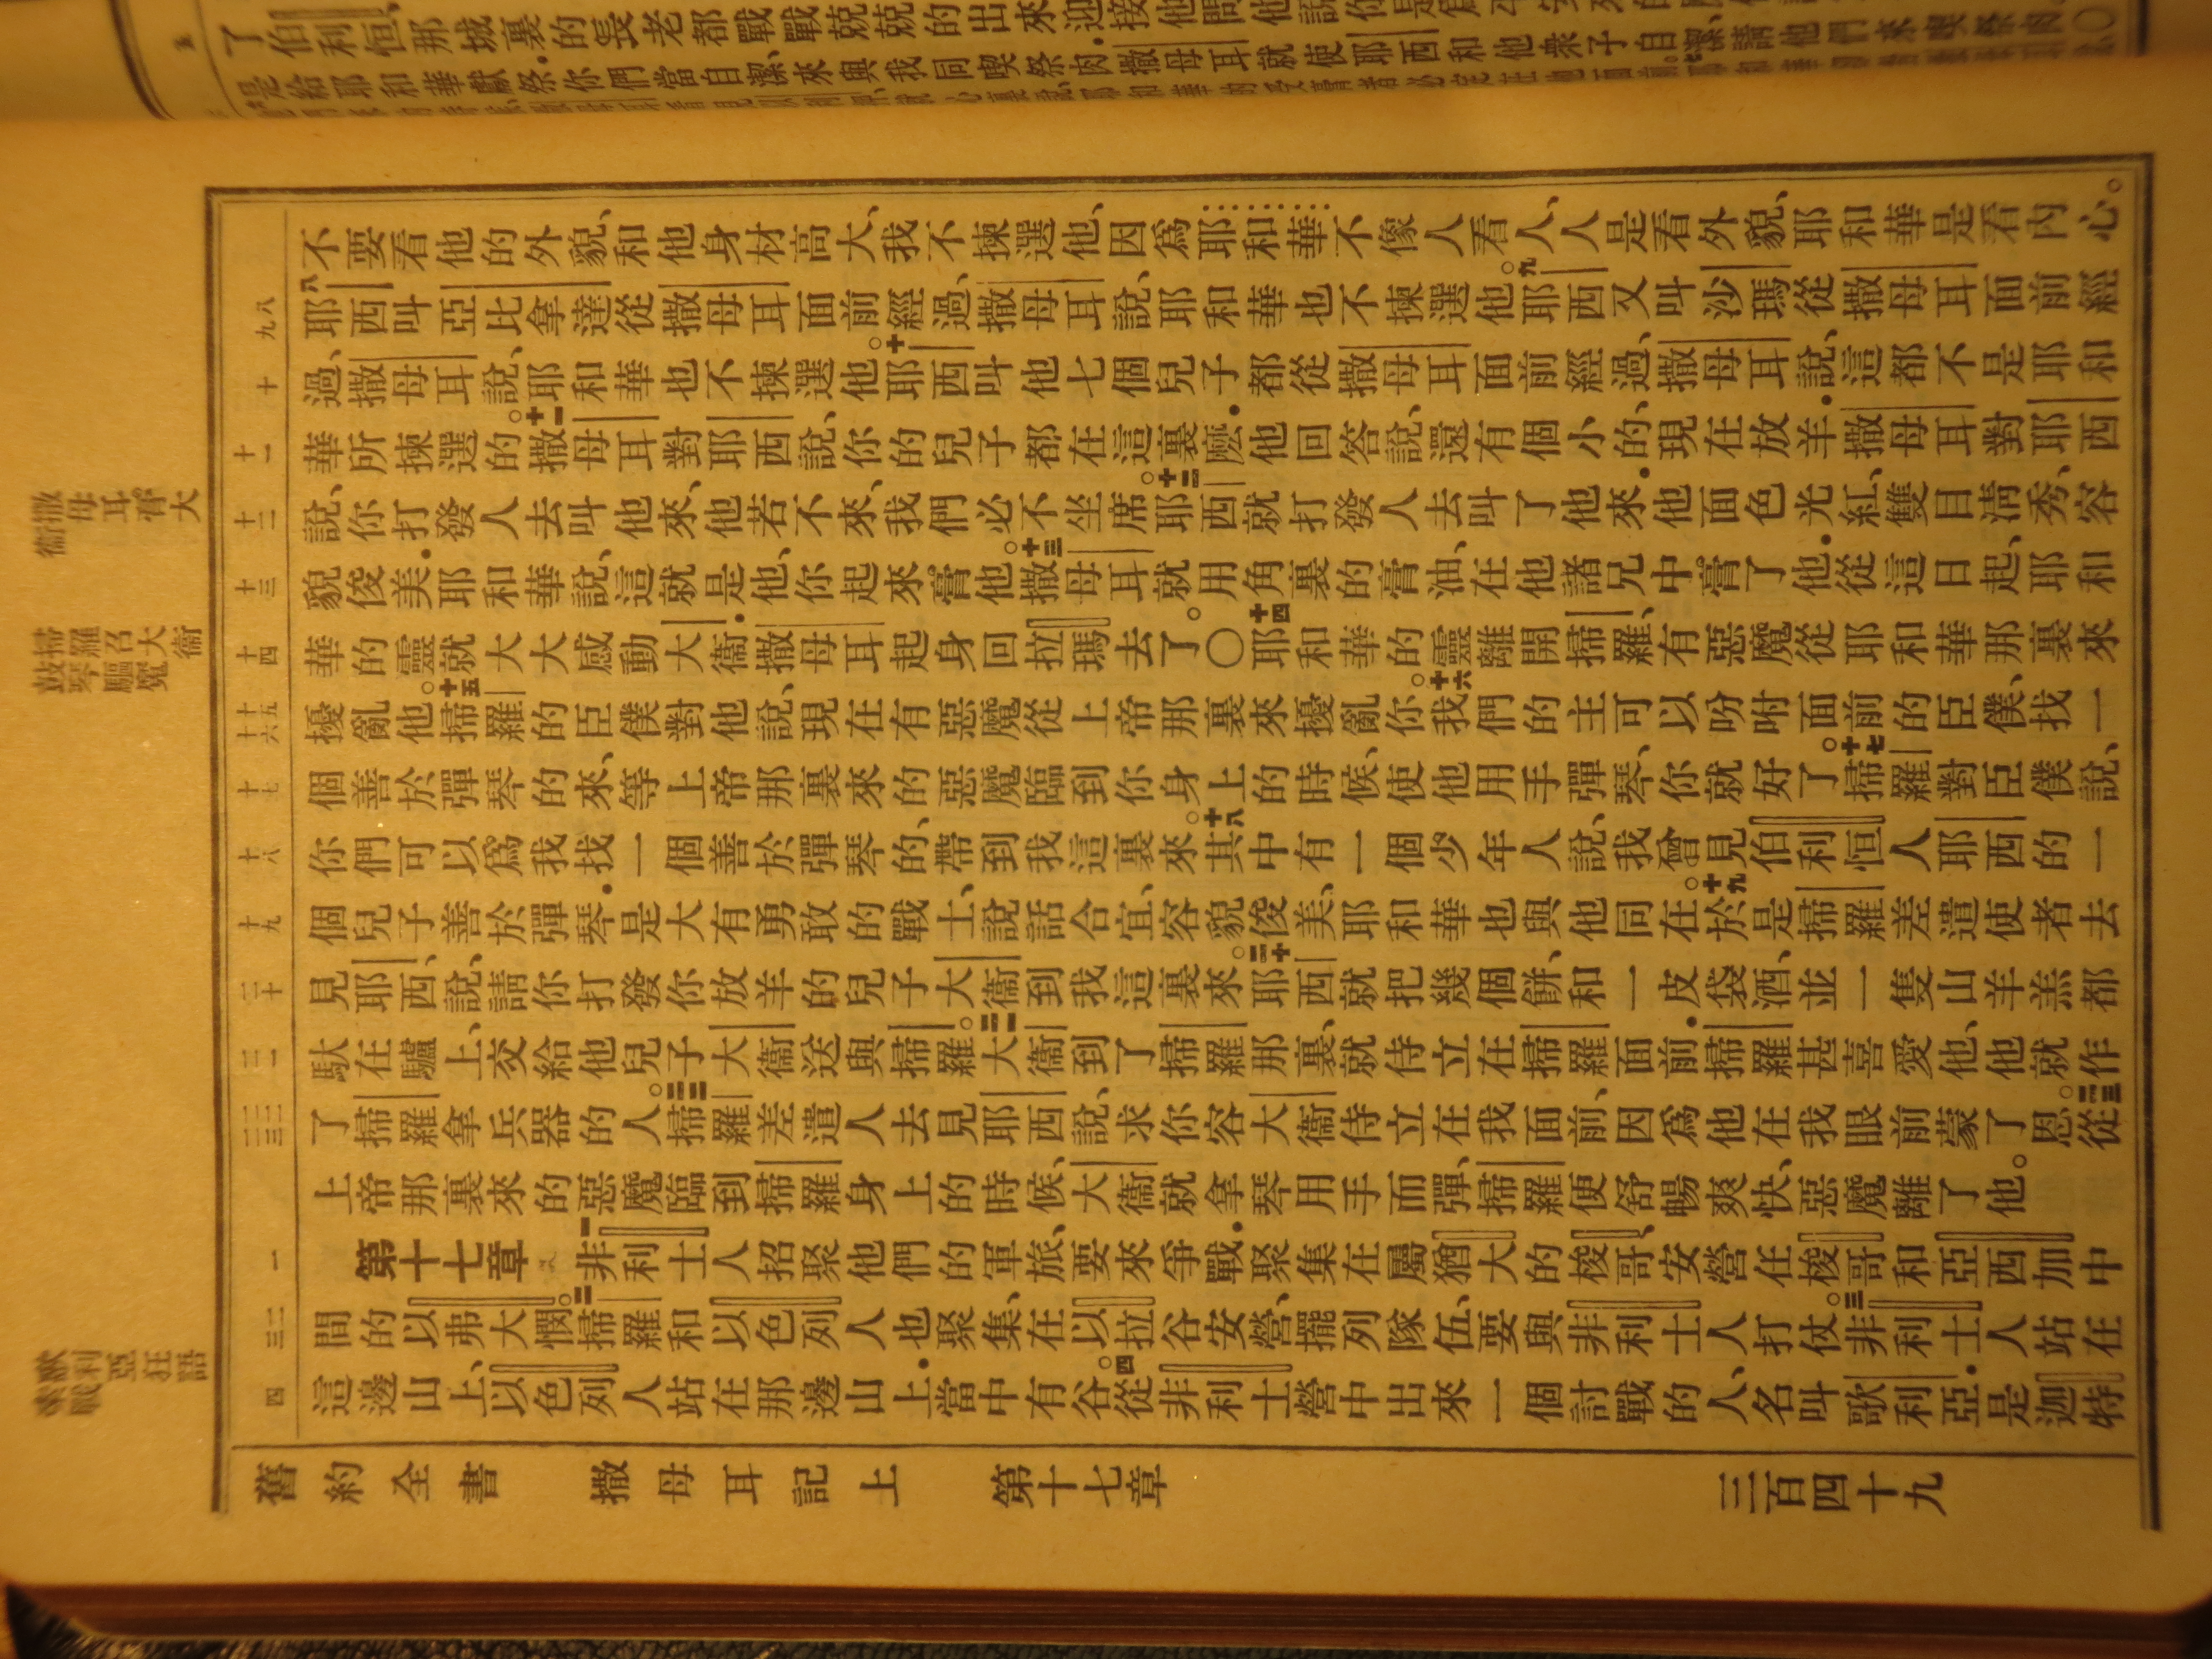 了伯利恒那城裏的長老都戰戰兢兢的出來迎接他問他說你是
是給耶和華獻祭你們當自潔來與我同喫祭肉撒母耳就使耶西和他衆子自潔請他們來喫祭肉○
不要看他的外貌、和他身材高大、我不揀選他、因爲耶和華不像人看人、人是看外貌、耶和華是看內心。
八耶西叫亞比拿達從撒母耳面前經過、撒母耳說、耶和華也不揀選他。九耶西又叫沙瑪從撒母耳面前經
過、撒母耳說、耶和華也不揀選他。十耶西叫他七個兒子都從撒母耳面前經過、撒母耳說、這都不是耶和
華所揀選的。十一撒母耳對耶西說、你的兒子都在這裏麽.他回答說、還有個小的、現在放羊.撒母耳對耶西
說、你打發人去叫他來、他若不來、我們必不坐席。十二耶西就打發人去叫了他來.他面色光紅、雙目淸秀、容
貌俊美.耶和華說、這就是他、你起來膏他。十三撒母耳就用角裏的膏油、在他諸兄中膏了他.從這日起、耶和
華的靈就大大感動大衞.撒母耳起身回拉瑪去了。○十四耶和華的靈離開掃羅、有惡魔從耶和華那裏來
擾亂他。十五掃羅的臣僕對他說、現在有惡魔從上帝那裏來擾亂你。十六我們的主可以吩咐面前的臣僕、找一
個善於彈琴的來、等上帝那裏來的惡魔臨到你身上的時候、使他用手彈琴、你就好了。十七掃羅對臣僕說、
你們可以爲我找一個善於彈琴的、帶到我這裏來。十八其中有一個少年人說、我曾見伯利恒人耶西的一
個兒子善於彈琴.是大有勇敢的戰士、說話合宜、容貌俊美、耶和華也與他同在。十九於是掃羅差遣使者去
見耶西、說、請你打發你放羊的兒子大衞到我這裏來。二十耶西就把幾個餅、和一皮袋酒、並一隻山羊羔都
馱在驢上、交給他兒子大衞送與掃羅。二一大衞到了掃羅那裏、就侍立在掃羅面前.掃羅甚喜愛他、他就作
了掃羅拿兵器的人。二二掃羅差遣人去見耶西說、求你容大衞侍立在我面前、因爲他在我眼前蒙了恩。二三從
上帝那裏來的惡魔臨到掃羅身上的時候、大衞就拿琴用手而彈、掃羅便舒暢爽快、惡魔離了他。
第十七章 一非利士人招聚他們的軍旅、要來爭戰.聚集在屬猶大的梭哥、安營在梭哥和亞西加中
間的以弗大憫。二掃羅和以色列人也聚集、在以拉谷安營、擺列隊伍、要與非利士人打仗。三非利士人站在
這邊山上、以色列人站在那邊山上.當中有谷。四從非利士營中出來一個討戰的人、名叫歌利亞.是迦特
舊約全書 撒母耳記上 第十七章 三百四十九
九八
十
十一
十二
十三
十四
十六 十五
十七
十八
十九
二十
二一
二三 二二
一
三二
四
撒母耳膏大衞
掃羅召大衞鼓琴驅魔
歌利亞狂語索戰